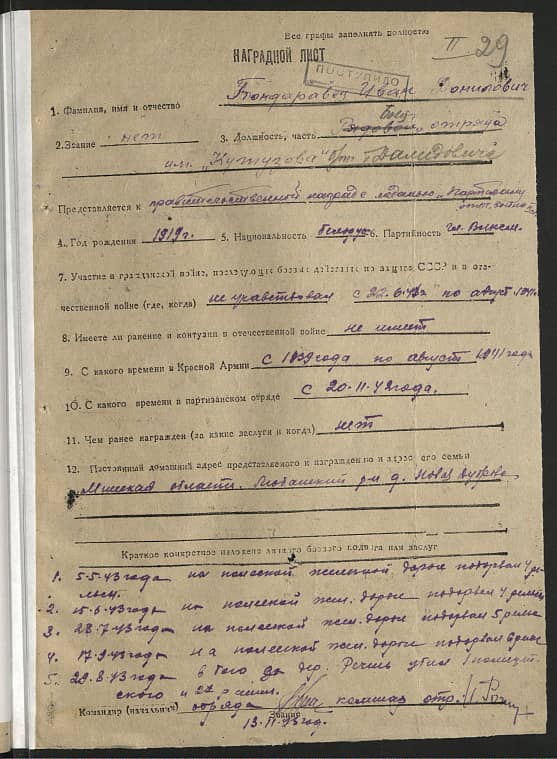 Все графы заполнять полностью
II 29
НАГРАДНОЙ ЛИСТ
ПОСТУПИЛО
1. Фамилия, имя и отчество Бондаровец Иван Данилович
2. Звание нет 3. Должность, часть Рядовой боец отряда
им. "Кутузова"
Представляется к правительственной награде медалью "Партизану отеч. войны
4. Год рождения 1919 г. 5. Национальность белорус 6. Партийность чл. ВЛКСМ.
7. Участие в гражданской войне, последующих боевых действиях по защите СССР и в оте-
чественной войне (где, когда) не участвовал с 22.6. по август 1941 г.
8. Имеете ли ранение и контузии в отечественной войне не имеет
9. С какого времени в Красной Армии с 1939 года по август 1941 года
10. С какого времени в партизанском отряде с 20.11.42 года.
11. Чем ранее награжден (за какие заслуги и когда) нет
12. Постоянный домашний адрес представляемого к награждению и адрес его семьи
Минская область. Любанский р-н д. Новая
Краткое конкретное изложение личного боевого подвига или заслуг
1. 5.5.43 года на полесской железной дороге подорвал 4 ре-
льсы.
2. 15.6.43 года на полесской жел. дороге подорвал 4 рельсы
3. 28.7.43 года на полесской жел. дороге подорвал 5 рельс
4. 17.9.43 года на полесской жел. дороге подорвал 6 рельс
5. 29.8.43 года в бою за дер. Речень убил 1 полицей-
ского и 2х ранил.
Командир (начальник) отряда комиссар отр.
Звание
13.11.43 год.